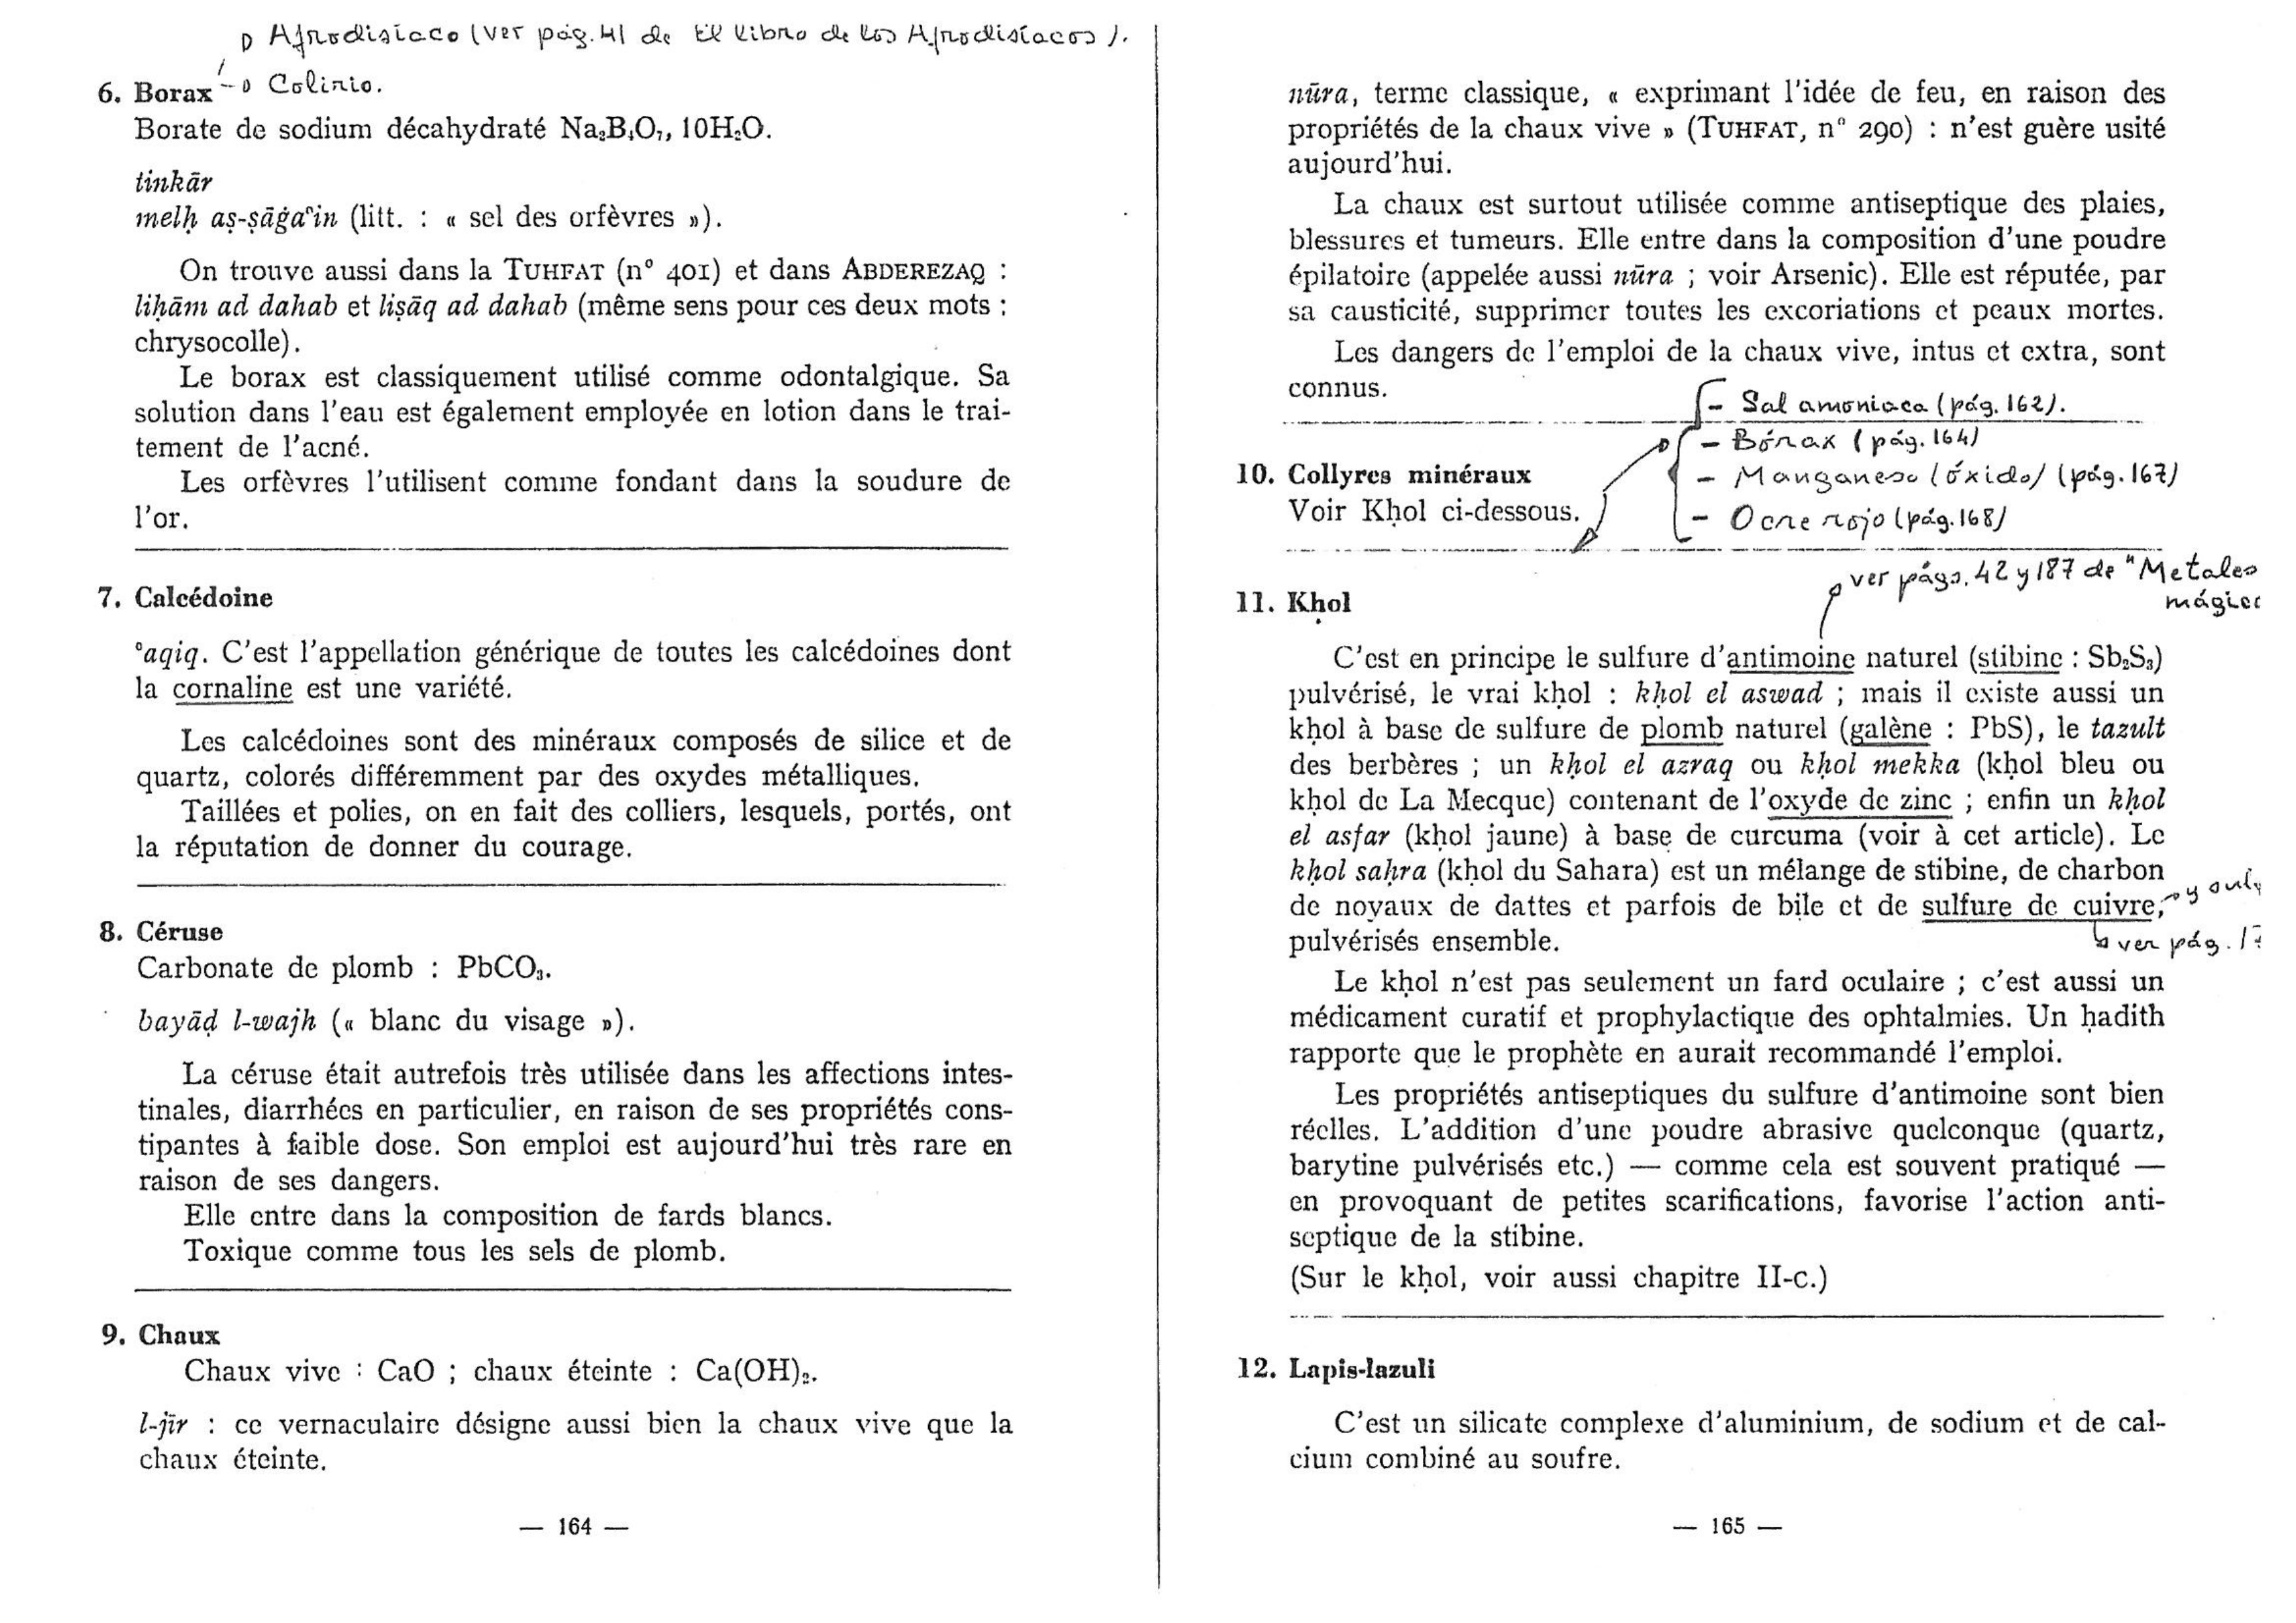 Afrodisíaco (ver pág. 41 de El libro de los Afrodisíacos).
6. Borax
Colirio.
Borate de sodium décahydraté Na₂B₄O₇, 10H₂O.
tinkār
melḥ aṣ-ṣāġaʿin (litt. : « sel des orfèvres »).
On trouve aussi dans la TUHFAT (nº 401) et dans ABDEREZAQ :
liḥām ad dahab et liṣāq ad dahab (même sens pour ces deux mots :
chrysocolle).
Le borax est classiquement utilisé comme odontalgique. Sa
solution dans l'eau est également employée en lotion dans le trai-
tement de l'acné.
Les orfèvres l'utilisent comme fondant dans la soudure de
l'or.
7. Calcédoine
ʿaqiq. C'est l'appellation générique de toutes les calcédoines dont
la cornaline est une variété.
Les calcédoines sont des minéraux composés de silice et de
quartz, colorés différemment par des oxydes métalliques.
Taillées et polies, on en fait des colliers, lesquels, portés, ont
la réputation de donner du courage.
8. Céruse
Carbonate de plomb : PbCO₃.
bayāḍ l-wajh (« blanc du visage »).
La céruse était autrefois très utilisée dans les affections intes-
tinales, diarrhées en particulier, en raison de ses propriétés cons-
tipantes à faible dose. Son emploi est aujourd'hui très rare en
raison de ses dangers.
Elle entre dans la composition de fards blancs.
Toxique comme tous les sels de plomb.
9. Chaux
Chaux vive : CaO ; chaux éteinte : Ca(OH)₂.
l-jīr : ce vernaculaire désigne aussi bien la chaux vive que la
chaux éteinte.
— 164 —
nūra, terme classique, « exprimant l'idée de feu, en raison des
propriétés de la chaux vive » (TUHFAT, nº 290) : n'est guère usité
aujourd'hui.
La chaux est surtout utilisée comme antiseptique des plaies,
blessures et tumeurs. Elle entre dans la composition d'une poudre
épilatoire (appelée aussi nūra ; voir Arsenic). Elle est réputée, par
sa causticité, supprimer toutes les excoriations et peaux mortes.
Les dangers de l'emploi de la chaux vive, intus et extra, sont
connus.
- Sal amoniaca (pág. 162).
- Bórax (pág. 164)
10. Collyres minéraux
- Manganeso (óxido) (pág. 167)
Voir Kḥol ci-dessous.
- Ocre rojo (pág. 168)
ver págs. 42 y 187 de "Metales
11. Kḥol
C'est en principe le sulfure d'antimoine naturel (stibine : Sb₂S₃)
pulvérisé, le vrai kḥol : kḥol el aswad ; mais il existe aussi un
kḥol à base de sulfure de plomb naturel (galène : PbS), le tazult
des berbères ; un kḥol el azraq ou kḥol mekka (kḥol bleu ou
kḥol de La Mecque) contenant de l'oxyde de zinc ; enfin un kḥol
el asfar (kḥol jaune) à base de curcuma (voir à cet article). Le
kḥol saḥra (kḥol du Sahara) est un mélange de stibine, de charbon
de noyaux de dattes et parfois de bile et de sulfure de cuivre,
pulvérisés ensemble.
ver pág.
Le kḥol n'est pas seulement un fard oculaire ; c'est aussi un
médicament curatif et prophylactique des ophtalmies. Un ḥadith
rapporte que le prophète en aurait recommandé l'emploi.
Les propriétés antiseptiques du sulfure d'antimoine sont bien
réelles. L'addition d'une poudre abrasive quelconque (quartz,
barytine pulvérisés etc.) — comme cela est souvent pratiqué —
en provoquant de petites scarifications, favorise l'action anti-
septique de la stibine.
(Sur le kḥol, voir aussi chapitre II-c.)
12. Lapis-lazuli
C'est un silicate complexe d'aluminium, de sodium et de cal-
cium combiné au soufre.
— 165 —